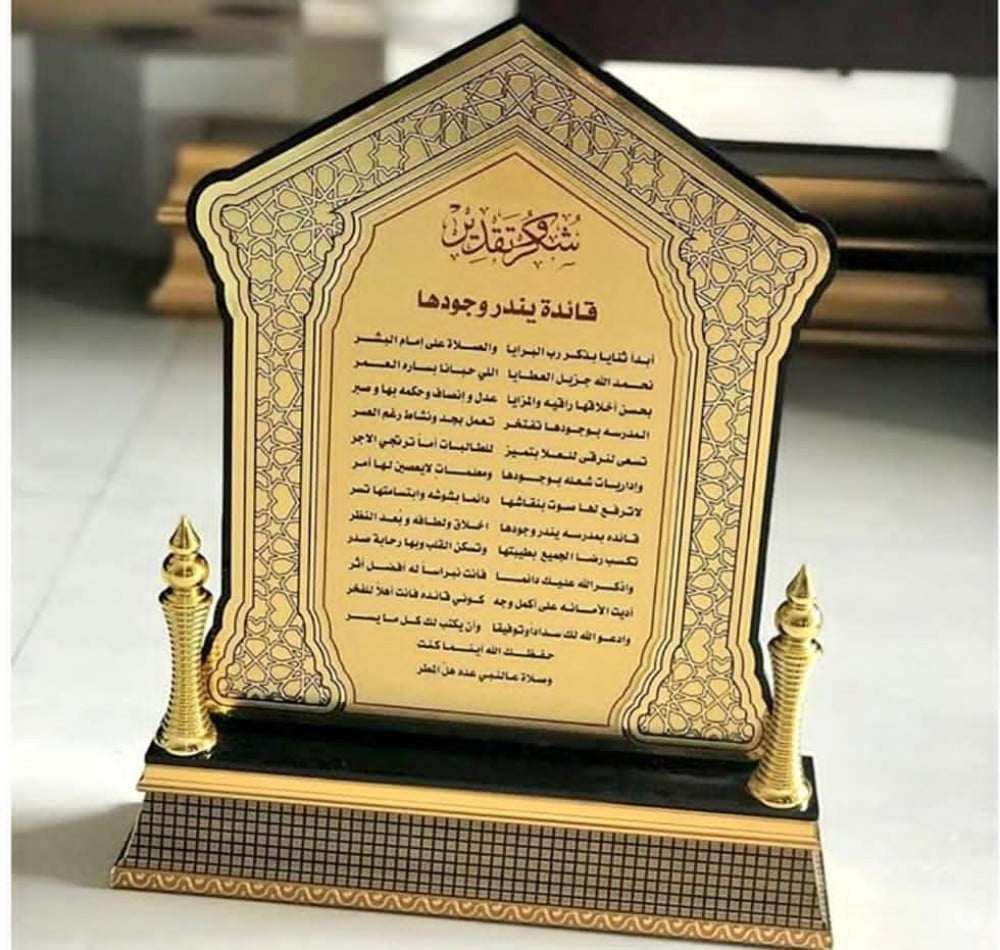 شكر وتقدير
قائدة يندر وجودها
أبدأ ثنايا بذكر رب البرايا والصلاة على إمام البشر
نحمد الله جزيل العطايا اللي حبانا بساره العمر
بحسن أخلاقها راقيه والمزايا عدل وإنساف وحكمه بها وصبر
المدرسه بوجودها تفتخر تعمل بجد ونشاط رغم العسر
تسعى لنرقى للعلا بتميز للطالبات أماً ترتجي الاجر
وإداريات شعله بوجودها ومعلمات لايعصين لها أمر
لاترفع لها صوت بنقاشها دائما بشوشه وابتسامتها تسر
قائده بمدرسه يندر وجودها اخلاق ولطافه وبُعد النظر
تكسب رضا الجميع بطيبتها وتسكن القلب وبها رحابة صدر
واذكر الله عليك دائما فأنت نبراسا له افضل أثر
أديت الأمانه على أكمل وجه كوني قائده فانت أهلاً للفخر
وادعو الله لك سداداً وتوفيقا وأن يكتب لك كل ما يسر
حفظك الله اينما كنت
وصلاة عالنبي عدد هل المطر